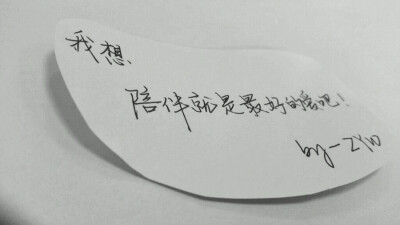 我想
陪伴就是最好的爱吧！
by-ZYW